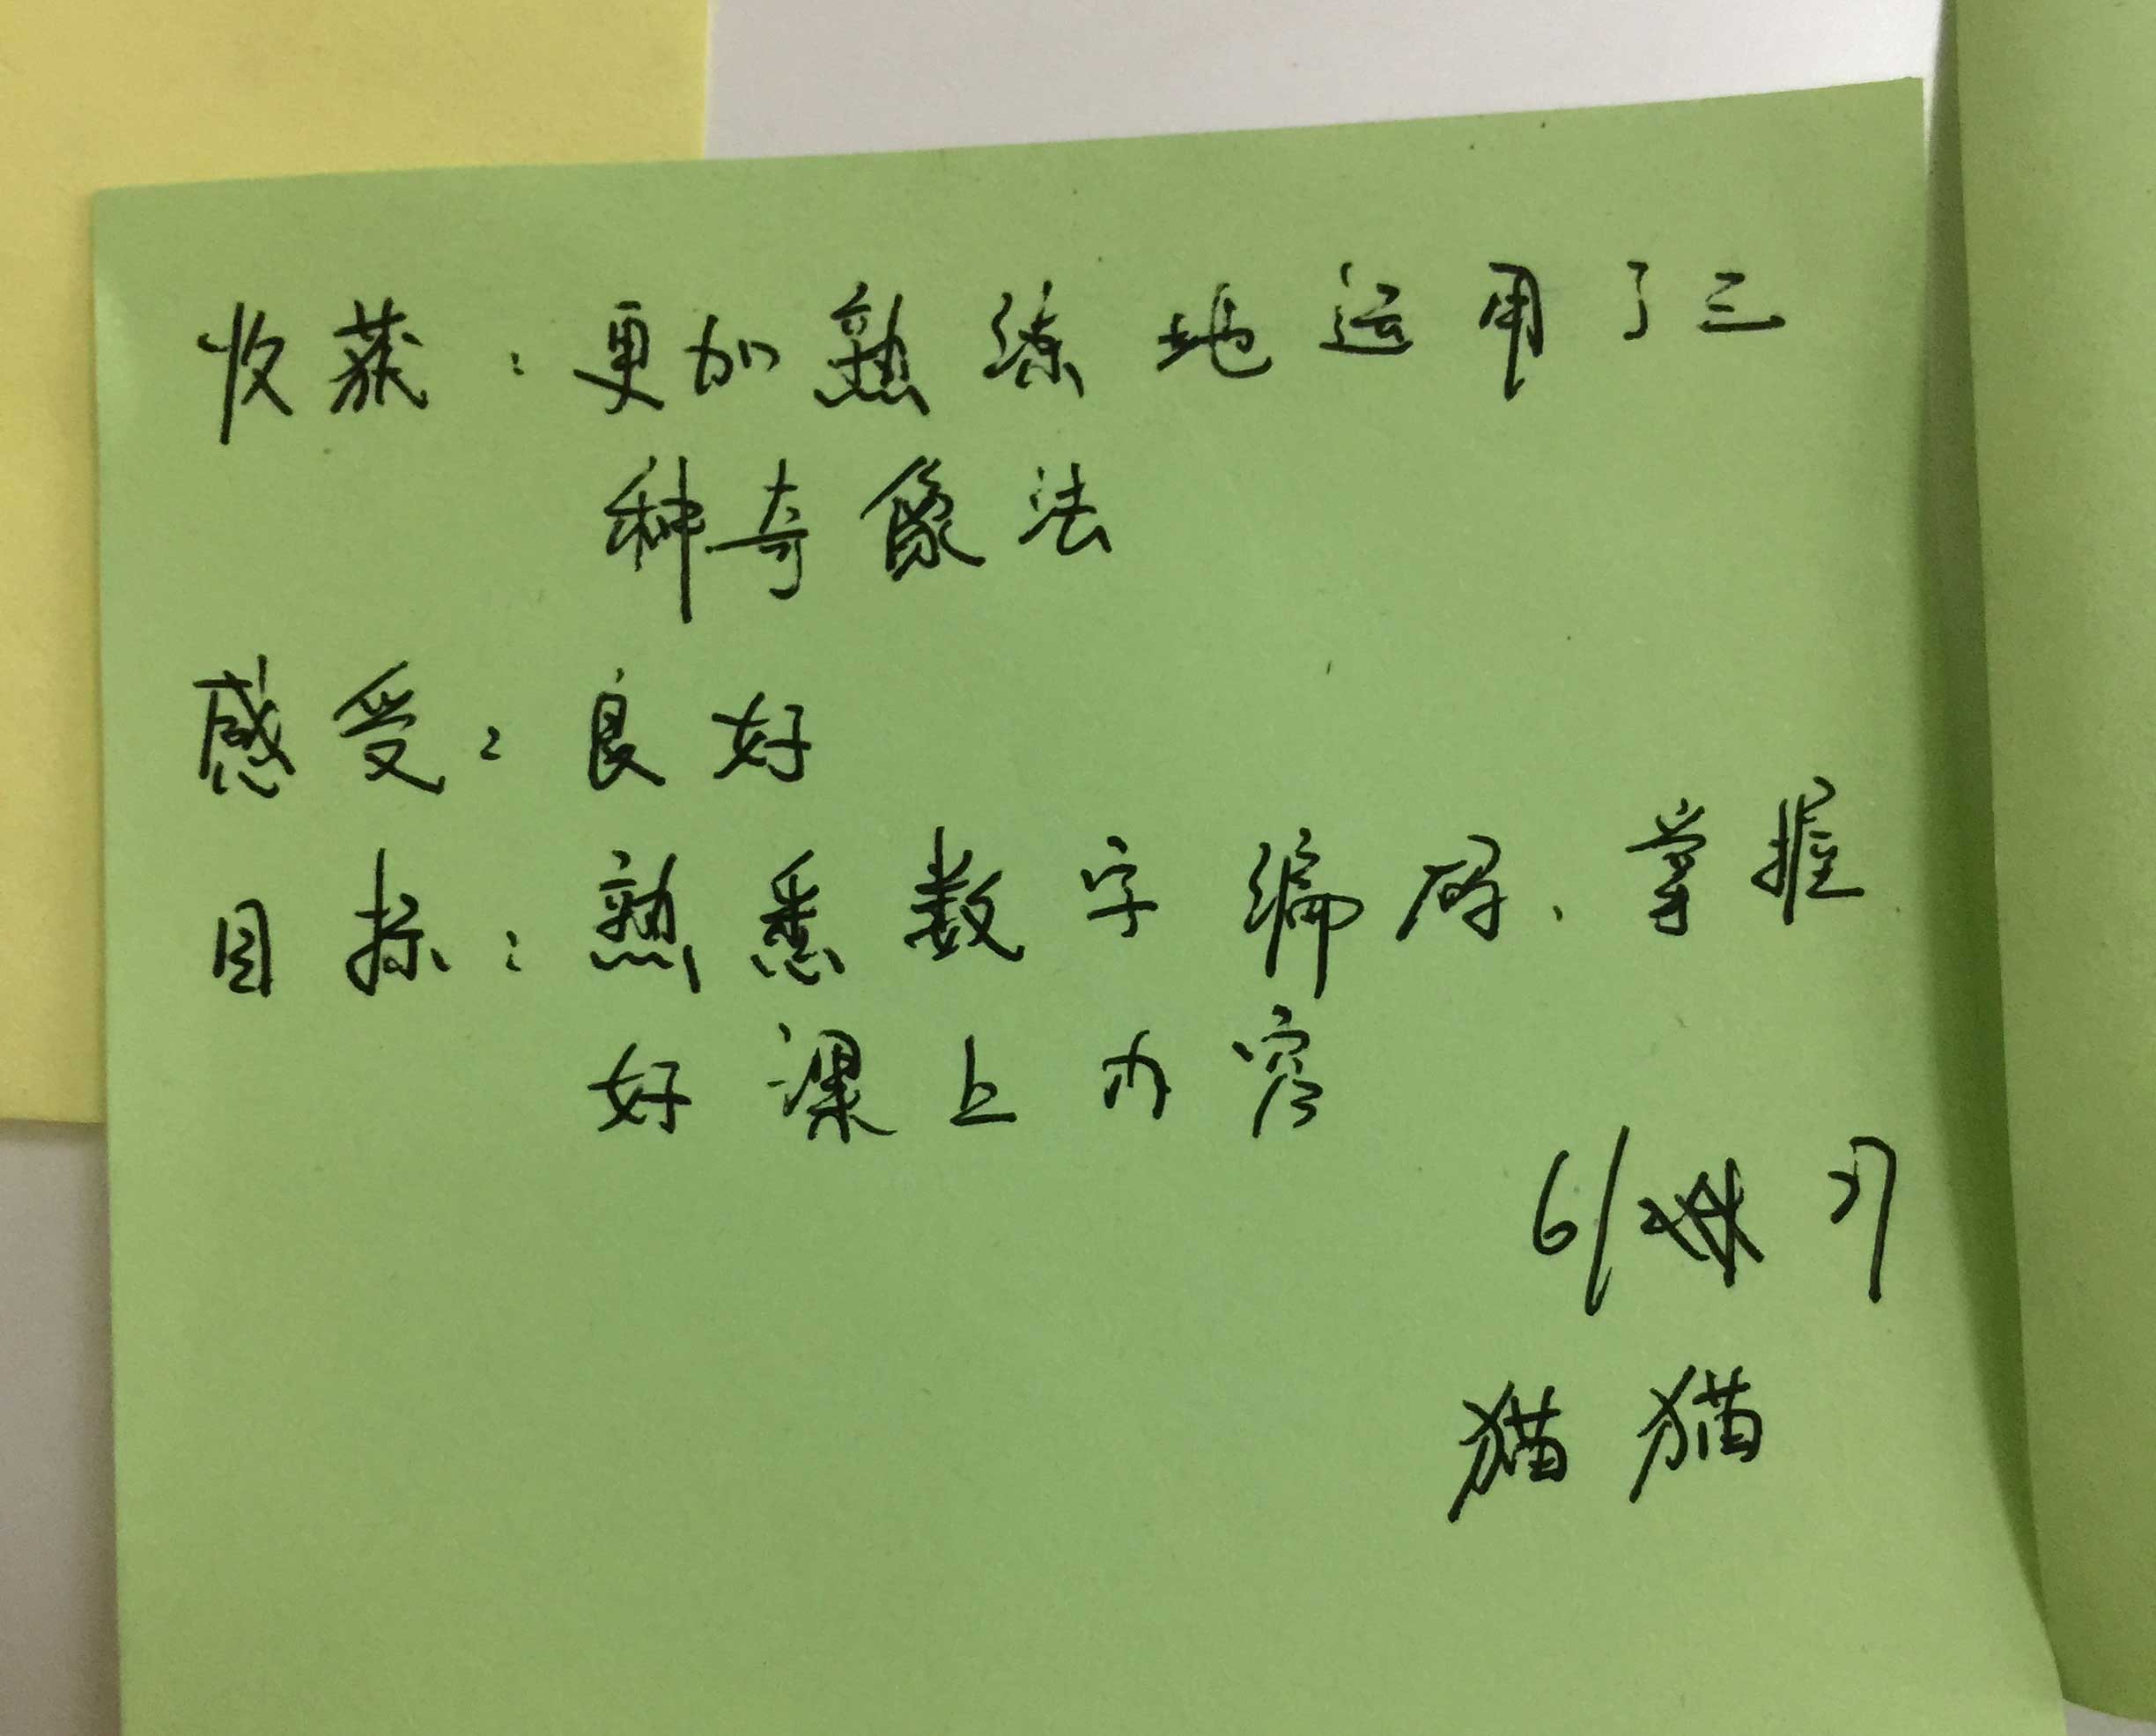 收获：更加熟练地运用了三
种奇像法
感受：良好
目标：熟悉数字编码、掌握
好课上内容
6/27
猫猫